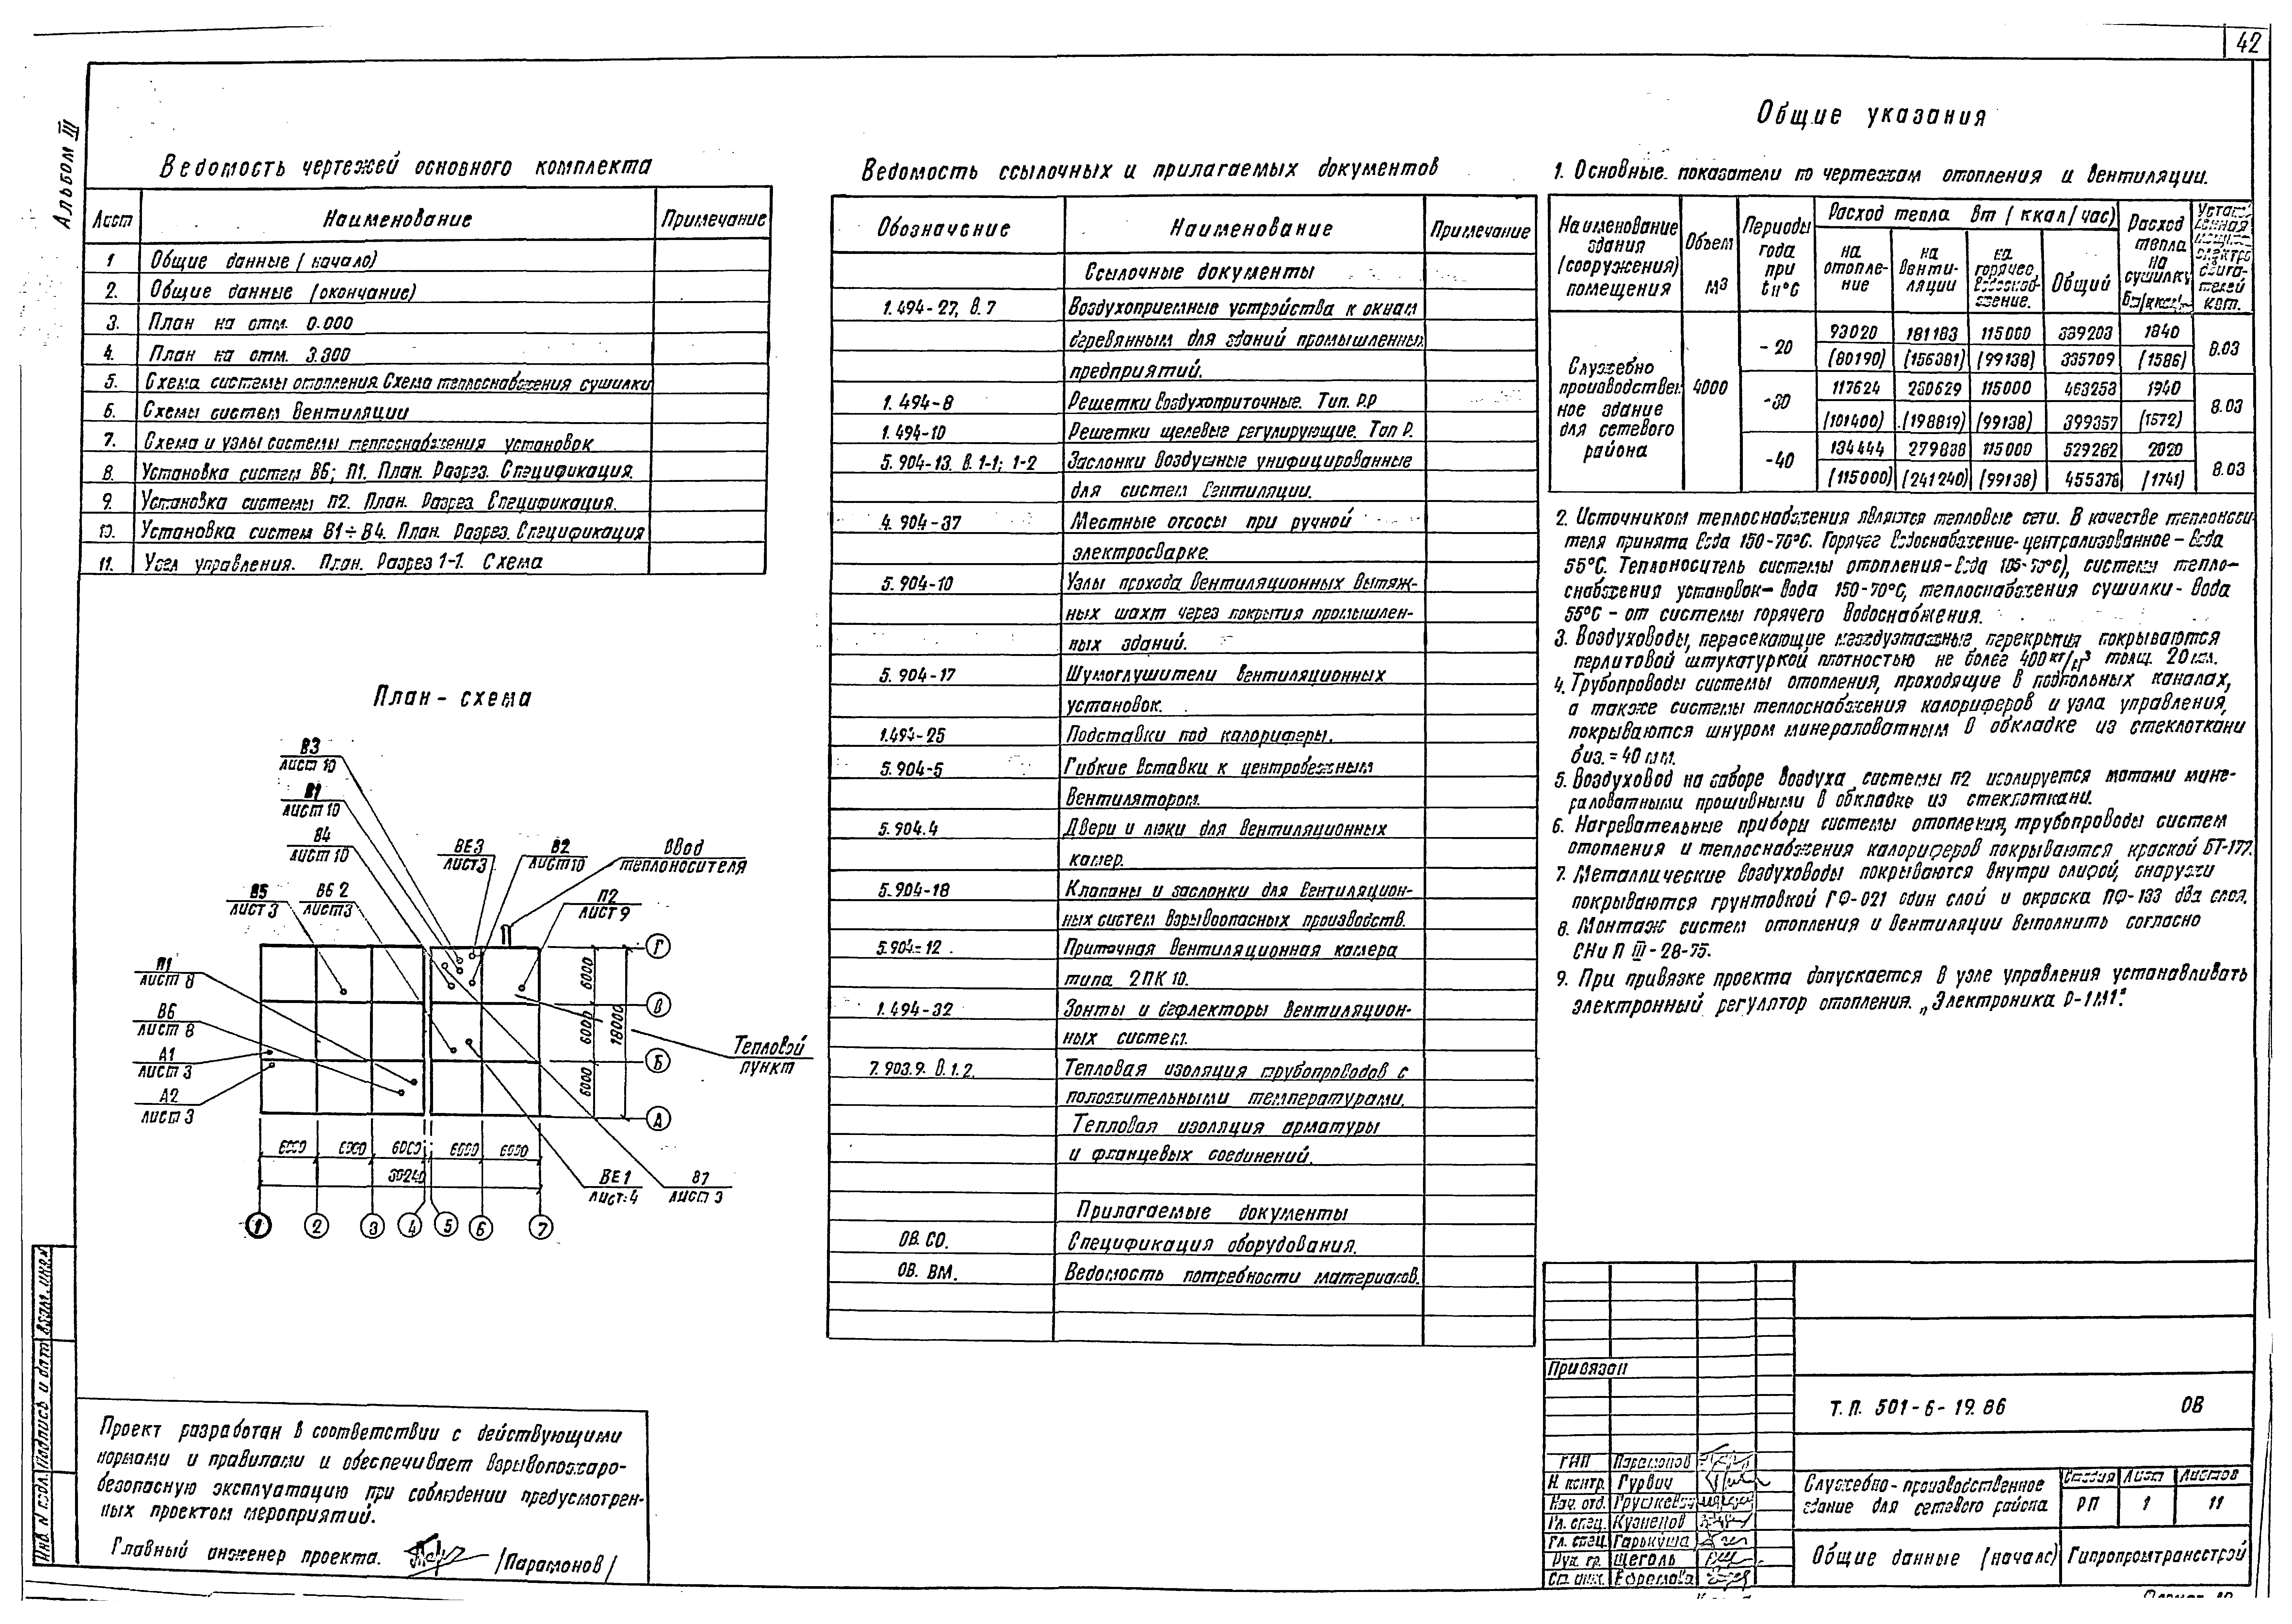 42
Альбом III
Ведомость чертежей основного комплекта
Лист Наименование Примечание
1 Общие данные (начало)
2. Общие данные (окончание)
3. План на отм. 0.000
4. План на отм. 3.300
5. Схема системы отопления Схема теплоснабжения сушилки
6. Схемы систем вентиляции
7. Схема и узлы системы теплоснабжения установок
8. Установка систем В6; П1. План. Разрез. Спецификация.
9. Установка системы П2. План. Разрез Спецификация.
10. Установка систем В1÷В4. План. Разрез. Спецификация
11. Узел управления. План. Разрез 1-1. Схема
План-схема
В3
лист 10
В1
лист 10
В4
лист 10
ВЕ3
лист 3
В2
лист 10
Ввод
теплоносителя
В5
лист 3
ВЕ 2
лист 3
П2
лист 9
П1
лист 8
В6
лист 8
А1
лист 3
А2
лист 3
Тепловой
пункт
Г
В
Б
А
6000
6000
6000
18000
6000 6000 6000 6000 6000
30240
ВЕ1
лист 4
В7
лист 3
1 2 3 4 5 6 7
Проект разработан в соответствии с действующими
нормами и правилами и обеспечивает взрывопожаро-
безопасную эксплуатацию при соблюдении предусмотрен-
ных проектом мероприятий.
Главный инженер проекта. /Парамонов/
Инв. N подл. Подпись и дата Взам. инв. N
Ведомость ссылочных и прилагаемых документов
Обозначение Наименование Примечание
Ссылочные документы
1.494-27, в.7 Воздухоприемные устройства к окнам
деревянным для зданий промышленных
предприятий.
1.494-8 Решетки воздухоприточные. Тип. РР
1.494-10 Решетки щелевые регулирующие. Тип Р.
5.904-13. в.1-1; 1-2 Заслонки воздушные унифицированные
для систем вентиляции.
4.904-37 Местные отсосы при ручной
электросварке.
5.904-10 Узлы прохода вентиляционных вытяж-
ных шахт через покрытия промышлен-
ных зданий.
5.904-17 Шумоглушители вентиляционных
установок.
1.494-25 Подставки под калориферы.
5.904-5 Гибкие вставки к центробежным
вентиляторам.
5.904.4 Двери и люки для вентиляционных
камер.
5.904-18 Клапаны и заслонки для вентиляцион-
ных систем взрывоопасных производств.
5.904-12. Приточная вентиляционная камера
типа 2ПК 10.
1.494-32 Зонты и дефлекторы вентиляцион-
ных систем.
7.903.9. в.1.2. Тепловая изоляция трубопроводов с
положительными температурами.
Тепловая изоляция арматуры
и фланцевых соединений.
Прилагаемые документы
ОВ.СО. Спецификация оборудования.
ОВ. ВМ. Ведомость потребности материалов.
Общие указания
1. Основные показатели по чертежам отопления и вентиляции.
Наименование здания (сооружения) помещения
Объем м3
Периоды года при tн°С
Расход тепла Вт (ккал/час)
на отопле-ние
на венти-ляции
на горячее водоснаб-жение.
Общий
Расход тепла на сушилку
Служебно производствен ное здание для сетевого района
4000
-20 93020 181183 115000 389203 1840 8.03
(80190) (156381) (99138) 335709 (1586)
-30 117624 230629 115000 463253 1940 8.03
(101400) (198819) (99138) 399357 (1572)
-40 134444 279838 115000 529282 2020 8.03
(115000) (241240) (99138) 455378 (1741)
2. Источником теплоснабжения являются тепловые сети. В качестве теплоноси-
теля принята вода 150-70°С. Горячее водоснабжение-централизованное - вода
55°С. Теплоноситель системы отопления-вода 105-70°С), системы тепло-
снабжения установок- вода 150-70°С, теплоснабжения сушилки- вода
55°С - от системы горячего водоснабжения.
3. Воздуховоды, пересекающие междуэтажные перекрытия покрываются
перлитовой штукатуркой плотностью не более 400 кг/м3 толщ. 20 мм.
4. Трубопроводы системы отопления, проходящие в подпольных каналах,
а также системы теплоснабжения калориферов и узла управления,
покрываются шнуром минераловатным в обкладке из стеклоткани
биз.=40 мм.
5. Воздуховод на заборе воздуха системы П2 изолируется матами мине-
раловатными прошивными в обкладке из стеклоткани.
6. Нагревательные приборы системы отопления, трубопроводы систем
отопления и теплоснабжения калориферов покрываются краской БТ-177.
7. Металлические воздуховоды покрываются внутри олифой, снаружи
покрываются грунтовкой ГФ-021 один слой и окраска ПФ-133 два слоя.
8. Монтаж систем отопления и вентиляции выполнить согласно
СНиП III-28-75.
9. При привязке проекта допускается в узле управления устанавливать
электронный регулятор отопления „Электроника Р-1М1".
Привязан
Т.П. 501-6-19.86 ОВ
ГИП Парамонов
Н. контр. Гурвич
Нач. отд.
Гл. спец. Кузнецов
Гл. спец. Гаркуша
Рук. гр. Щеголь
Ст. инж. Ефремова
Служебно-производственное
здание для сетевого района
Стадия Лист Листов
РП 1 11
Общие данные (начало)
Гипропромтрансстрой